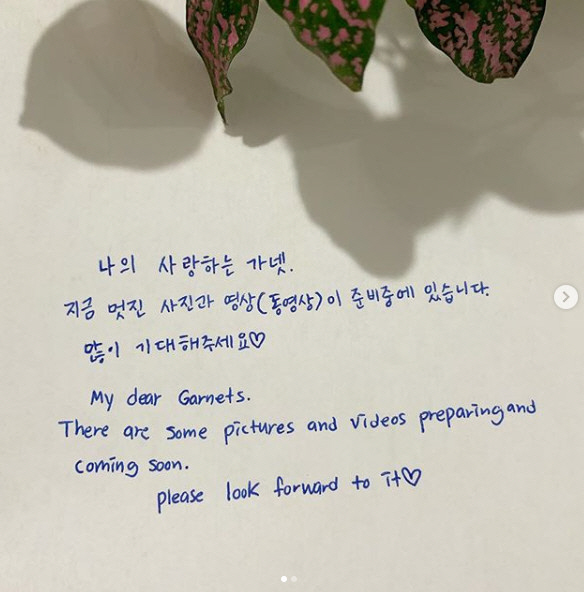 나의 사랑하는 가넷.
지금 멋진 사진과 영상(동영상)이 준비중에 있습니다.
많이 기대해주세요♡
My dear Garnets.
There are some pictures and videos preparing and
coming soon.
please look forward to it♡